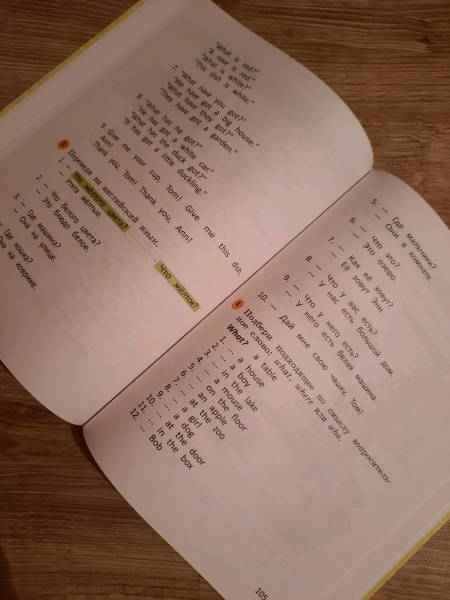 "What is red?"
"A rose is red."
"What is white?"
"This dish is white."
7. "What have you got?"
"We have got a big house."
"What have they got?"
"They have got a garden."
8. "What has he got?"
"He has got a white car."
"What has the duck got?"
"It has got a little duckling."
9. Give me your cup, Tom! Give me this dish,
Ann!
Thank you, Tom! Thank you, Ann!
3 Переведи на английский язык.
1. — Что жёлтого цвета?
— Утята жёлтые.
Что жёлтое?
2. — Что белого цвета?
— Это блюдо белое.
3. — Где машина?
— Она на улице.
— Где кошка?
— Она на коврике.
5. — Где мальчики?
— Они в комнате.
6. — Что это?
— Это озеро.
7. — Как её зовут?
— Её зовут Энн.
8. — Что у вас есть?
— У нас есть большой дом.
9. — Что у него есть?
— У него есть белая машина.
10. — Дай мне свою чашку, Том!
4 Подбери подходящее по смыслу вопроситель-
ное слово: what, where или who.
What? a table
1. ... a house
2. ... a boy
3. ... in the lake
4. ... a mouse
5. ... on the floor
6. ... an apple
7. ... at the zoo
8. ... a girl
9. ... a dog
10. ... at the door
11. ... in the box
12. ... Bob
105